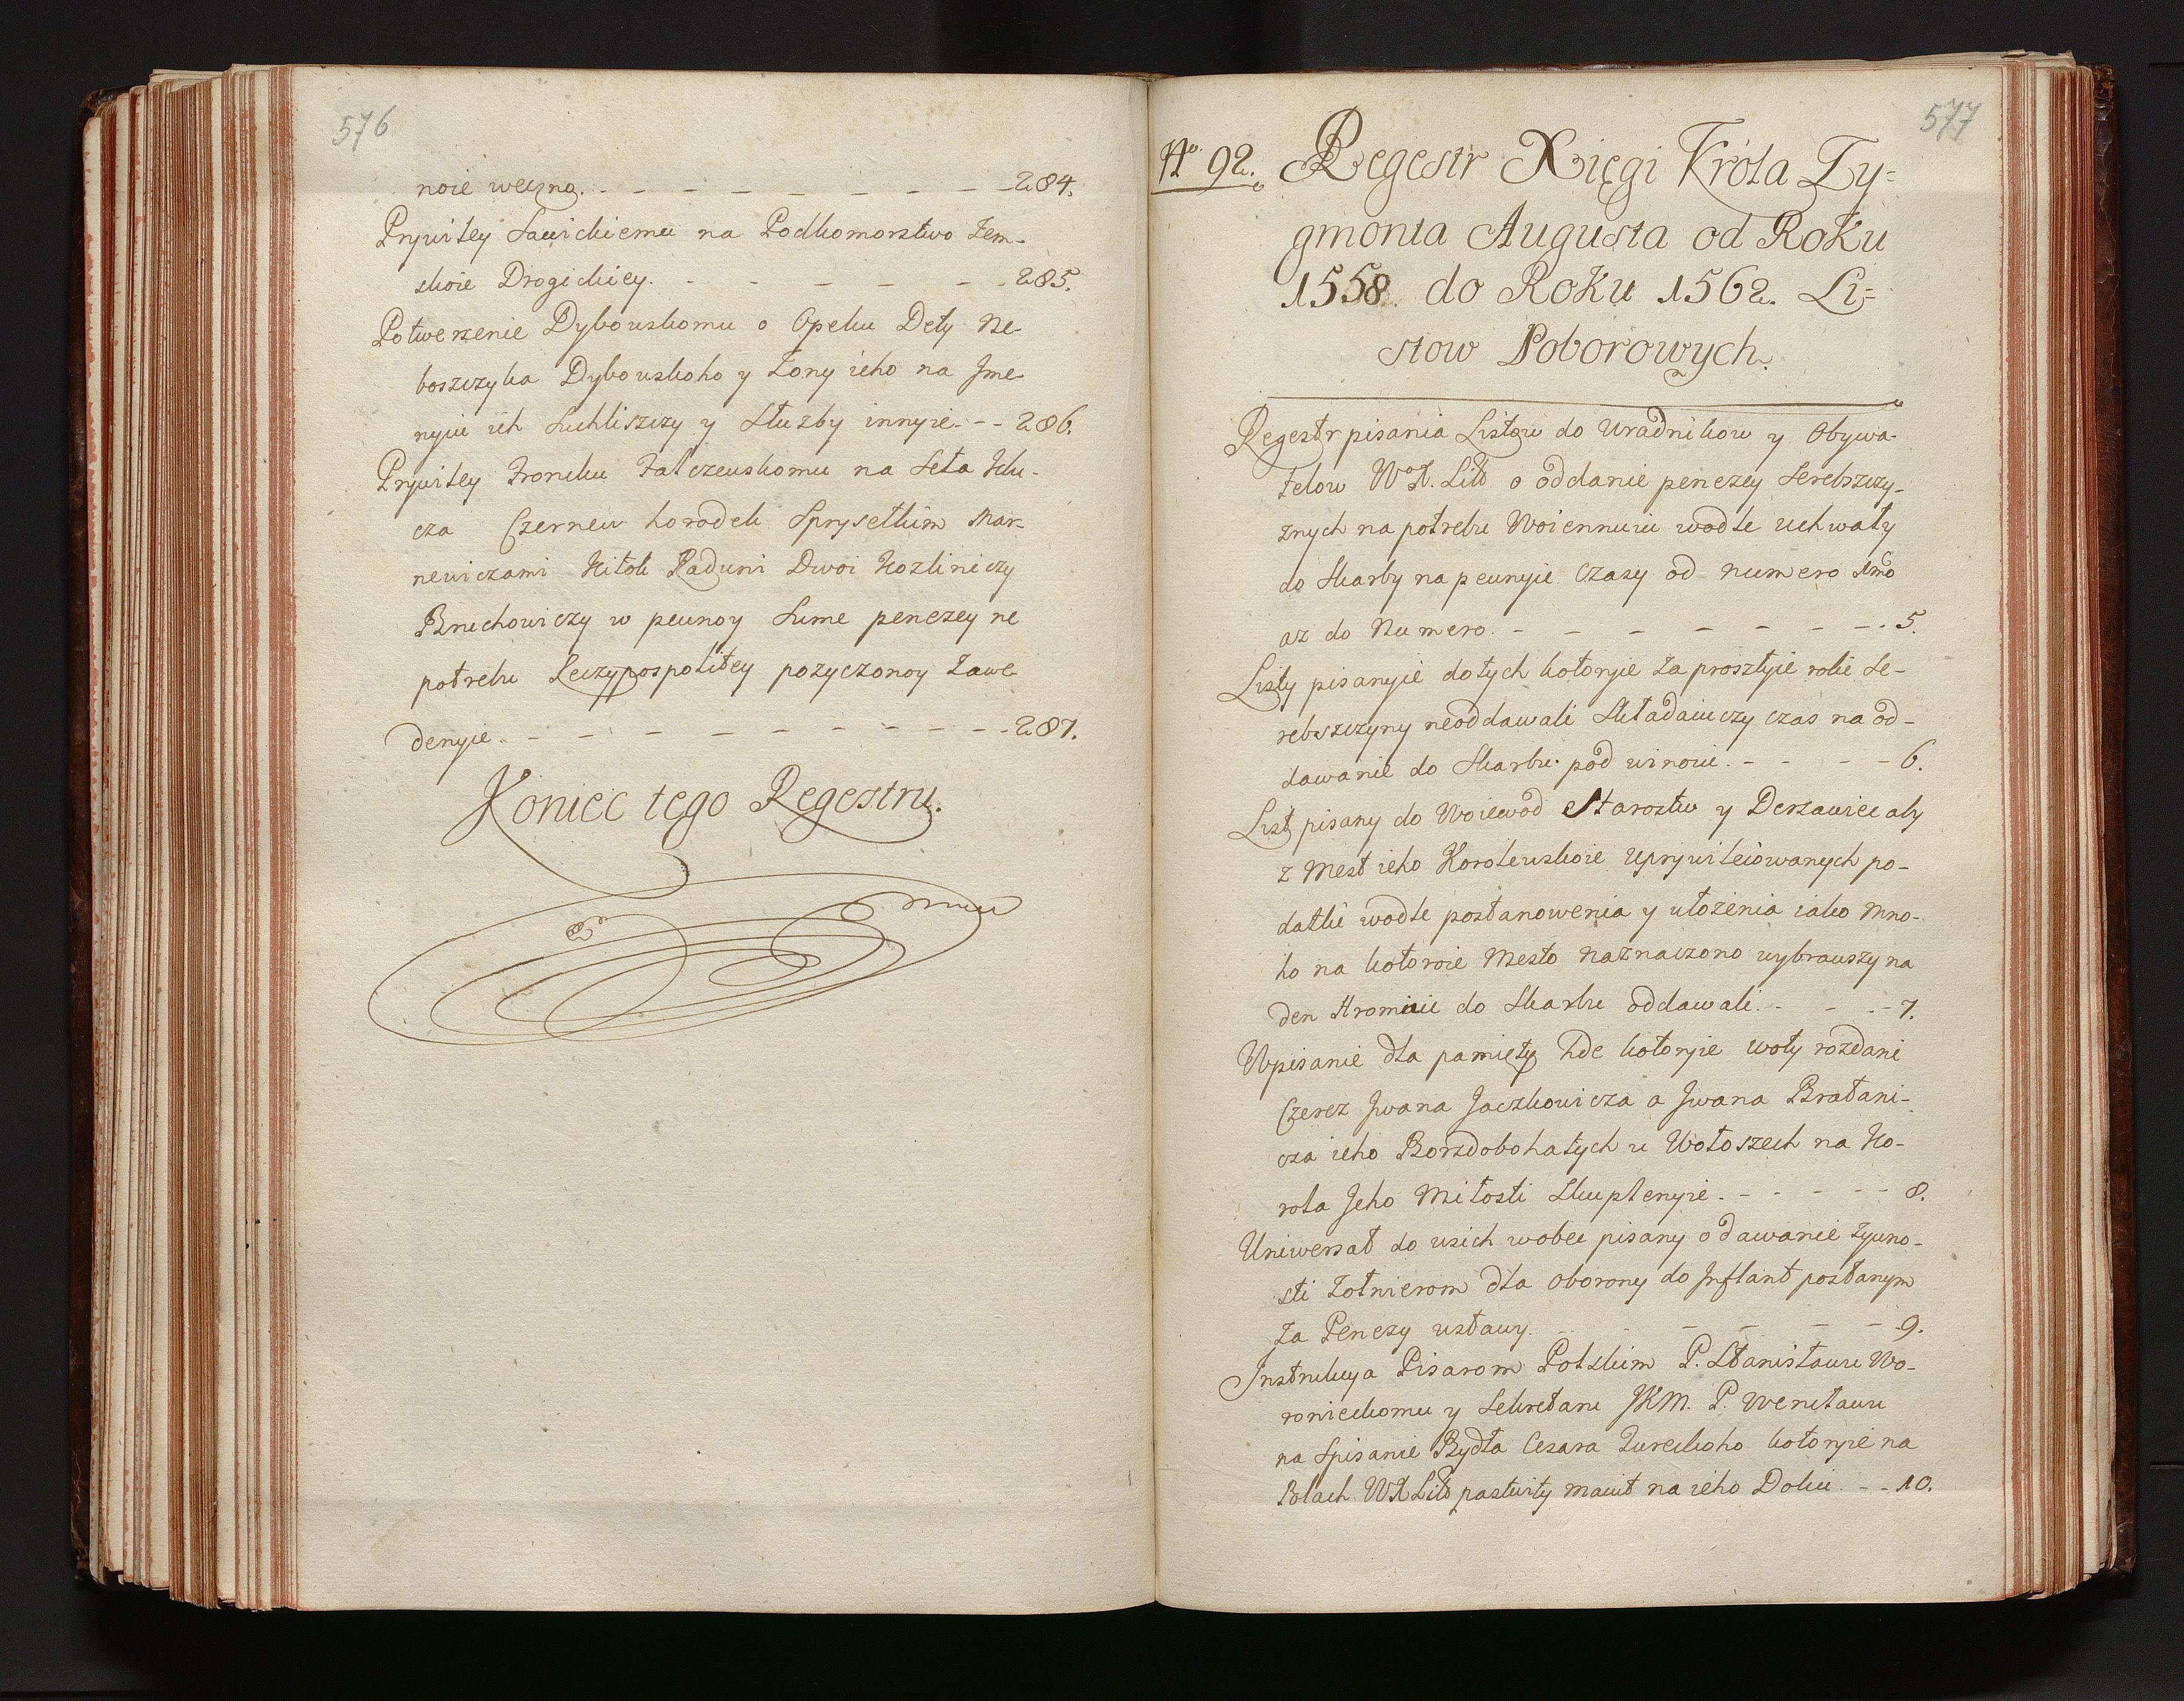 576
noie wecznо. - - - - - - - - 284.
Prywiley Sawickiemu na Podkomorstwo Zem-
skoie Drogickiey. - - - - - - 285.
Potwerzenie Dybowskomu o Opeku Dety Ne-
boszczyka Dybowskoho y Zony ieho na Jme-
nyiu ich Suchliszczy y Służby innyie. - - 286.
Prywiley Froncku Falczewskomu na Seła Klu-
cza Czernew horodek Sprysełkim Mar-
newiczami Kitok Raduni Dwoi Kozliniczy
Bruchowiczy w pewnoy Sume penezey ne
potrebu Reczypospolitey pozyczonoy Zawe-
denyie. - - - - - - - - - 287.
Koniec tego Regestru.
577
No. 92. Regestr Xięgi Króla Zy-
gmonta Augusta od Roku
1558. do Roku 1562. Li-
stow Poborowych.
Regestr pisania Listow do Uradnikow y Obywa-
telow WoX. Litt o oddanie penezey Serebszczy-
znych na potrebu Woiennuiu wodle uchwały
do Skarby na pewnyie Czasy od numero 1mo
az do Numero. - - - - - - - 5.
Listy pisanyie do tych kotoryie za proszłyie roki Se-
rebszczyny neoddawali Składaiuczy czas na od-
dawanie do Skarbu pod winoiu. - - - - 6.
List pisany do Woiewod Starostw y Derzawiec aby
z Mest ieho Korolewskoie uprywileiowanych po-
datki wodle postanowenia y ułożenia iako mno-
ho na kotoroie Mesto naznaczono wybrawszy na
den Hromnic do Skarbu oddawali. - - - 7.
Wpisanie dla pamięty Hde kotoryie woły rozdani
Czerez Jwana Jaczkowicza a Jwana Bratani-
cza ieho Borzdobohatych u Wołoszech na Ko-
rola Jeho Miłosti Skuplenyie. - - - - - 8.
Uniwersał do wsich wobec pisany o dawanie żywno-
sti Żołnierom dla oborony do Jnflant posłanym
za Penezy ustawy. - - - - - 9.
Jnstrukcya Pisarom Polskim P. Stanisławu Wo-
ronieckomu y Sekretaru JKM. P. Wencławu
na Spisanie Bydła Cesara Tureckoho kotoryie na
Polach WXLitt pastwity maiut na ieho Doku. - - 10.